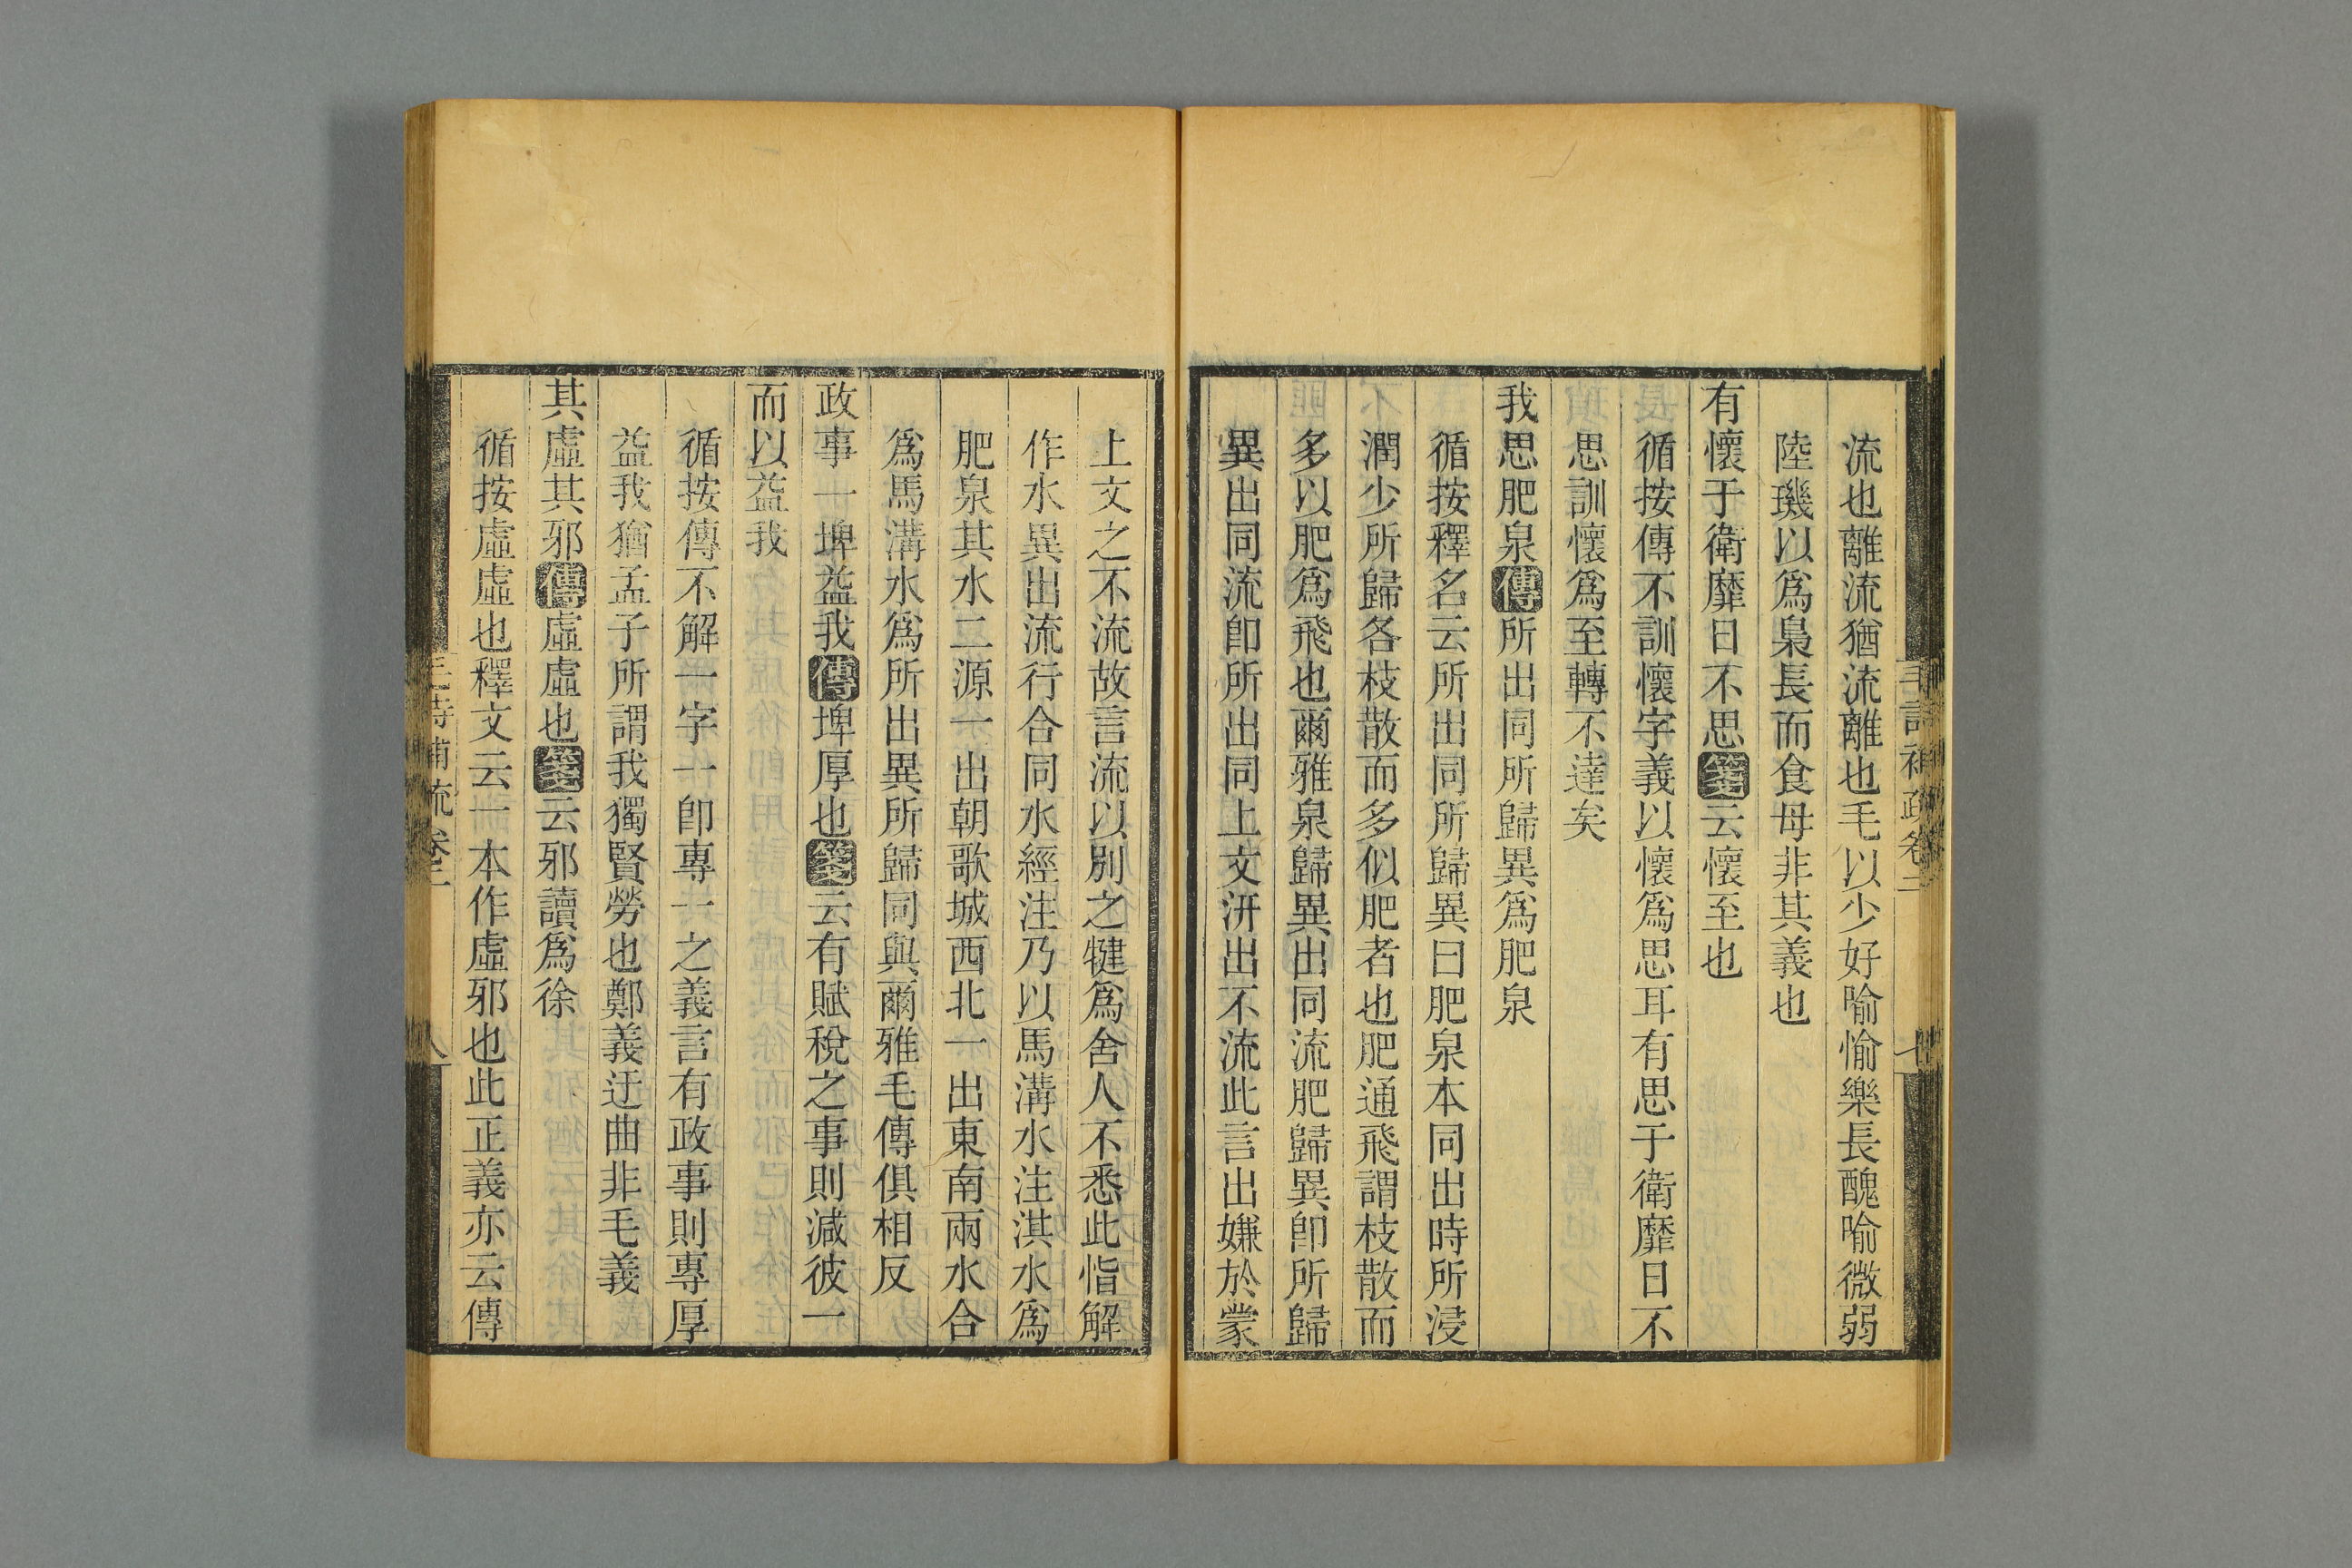 流也離流猶流離也毛以少好喻愉樂長醜喻微弱
陸璣以爲梟長而食母非其義也
有懷于衛靡日不思箋云懷至也
循按傳不訓懷字義以懷爲思耳有思于衛靡日不
思訓懷爲至轉不達矣
我思肥泉傳所出同所歸異爲肥泉
循按釋名云所出同所歸異曰肥泉本同出時所浸
潤少所歸各枝散而多似肥者也肥通飛謂枝散而
多以肥爲飛也爾雅泉歸異出同流肥歸異卽所歸
異出同流卽所出同上文汧出不流此言出嫌於蒙
上文之不流故言流以別之犍爲舍人不悉此恉解
作水異出流行合同水經注乃以馬溝水注淇水爲
肥泉其水二源一出朝歌城西北一出東南兩水合
爲馬溝水爲所出異所歸同與爾雅毛傳俱相反
政事一埤益我傳埤厚也箋云有賦稅之事則減彼一
而以益我
循按傳不解一字一卽專一之義言有政事則專厚
益我猶孟子所謂我獨賢勞也鄭義迂曲非毛義
其虛其邪傳虛虛也箋云邪讀爲徐
循按虛虛也釋文云一本作虛邪也此正義亦云傳
毛詩補疏卷二
七
八